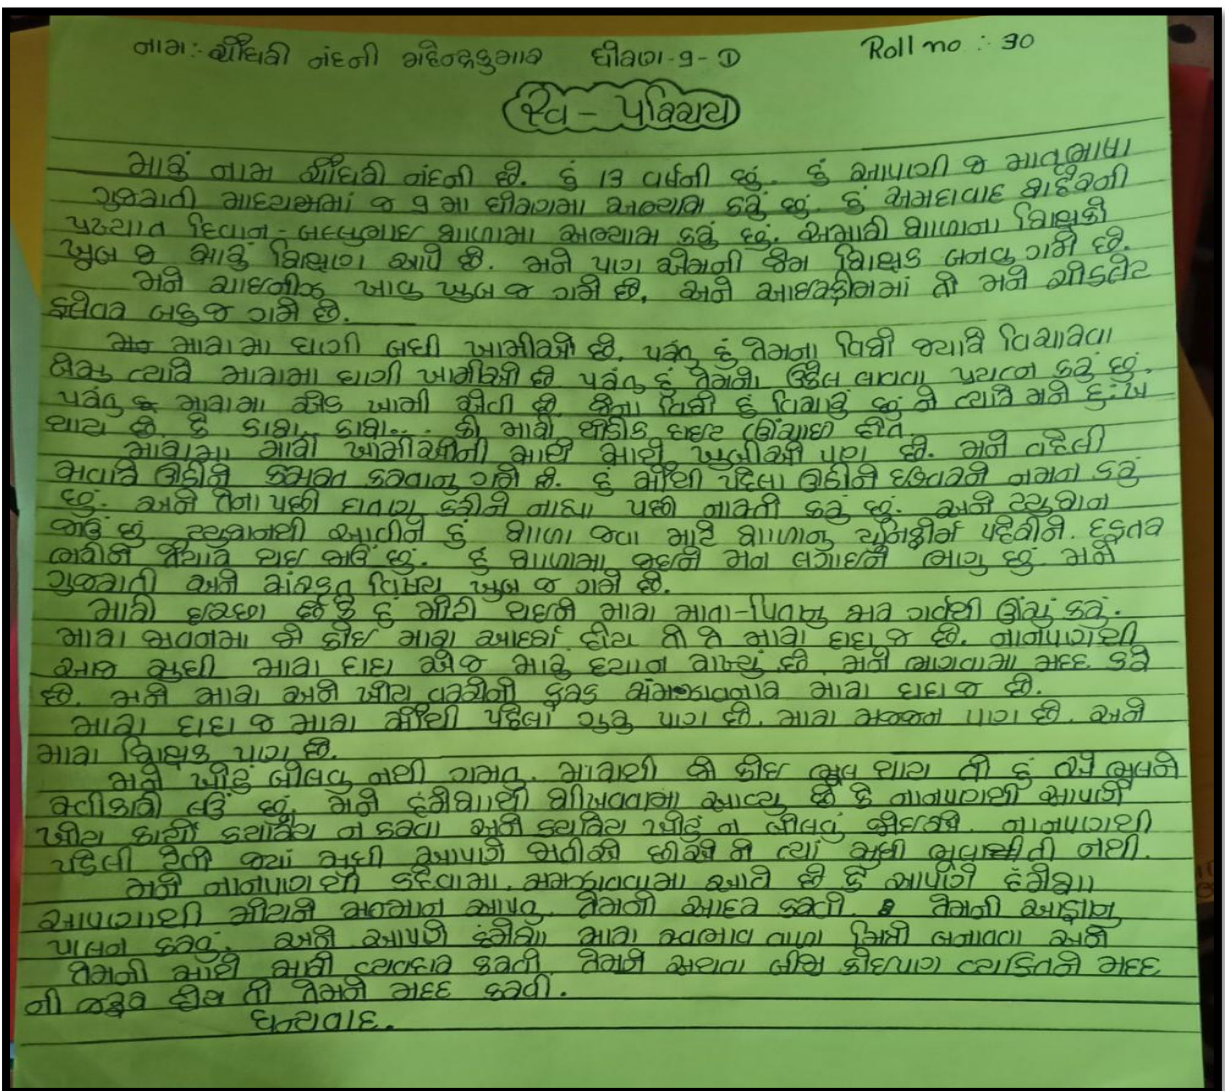 નામ:- ચૌધરી નંદની મહેન્દ્રકુમાર ધોરણ-9-D Roll no :- 30
સ્વ - પરિચય
મારું નામ ચૌધરી નંદની છે. હું 13 વર્ષની છું. હું આપણી જ માતૃભાષા
ગુજરાતી માધ્યમમાં જ 9 મા ધોરણમા અભ્યાસ કરું છું. હું અમદાવાદ શહેરની
પ્રખ્યાત દિવાન-બલ્લુભાઇ શાળામા અભ્યાસ કરું છું. અમારી શાળાના શિક્ષકો
ખુબ જ સારું શિક્ષણ આપે છે. મને પણ એમની જેમ શિક્ષક બનવુ ગમે છે.
મને ચાઇનીઝ ખાવુ ખુબ જ ગમે છે. અને આઇસ્ક્રીમમાં તો મને ચોકલેટ
ફ્લેવર બહુ જ ગમે છે.
મારામા ઘણી બધી ખામીઓ છે. પરંતુ હું તેમના વિશે જ્યારે વિચારવા
બેસુ ત્યારે મારામા ઘણી ખામીઓ છે પરંતુ હું તેમનો ઉકેલ લાવવા પ્રયત્ન કરું છું.
પરંતુ મારામા એક ખામી એવી છે. જેના વિશે હું વિચારું છું ને ત્યારે મને દુ:ખ
થાય છે કે કાશ.. કાશ... કે મારી થોડીક હાઇટ ઊંચાઇ હોત.
મારામા મારી ખામીઓની સાથે સાથે ખુબીઓ પણ છે. મને વહેલી
સવારે ઊઠીને કસરત કરવાનુ ગમે છે. હું સૌથી પહેલા ઊઠીને ઇશ્વરને નમન કરું
છું. અને તેના પછી દાતણ કરીને નાહ્યા પછી નાસ્તો કરું છું. અને ટ્યુશન
જાઉં છું. ટ્યુશનથી આવીને હું શાળા જવા માટે શાળાનુ યુનિફોર્મ પહેરીને. દફતર
ભરીને તૈયાર થઇ જાઉં છું. હું શાળામા જઇને મન લગાઇને ભણુ છું. મને
ગુજરાતી અને સંસ્કૃત વિષય ખુબ જ ગમે છે.
મારી ઇચ્છા છે કે હું મોટી થઇને મારા માતા-પિતાનુ સર ગર્વથી ઊંચું કરું.
મારા જીવનમા જો કોઇ મારા આદર્શ હોય તો તે મારા દાદા જ છે. નાનપણથી
આજ સુધી મારા દાદા એજ મારું ધ્યાન રાખ્યું છે. મને ભણવામા મદદ કરે
છે. મને સારા અને ખોટા વચ્ચેનો ફરક સમજાવનાર મારા દાદા જ છે.
મારા દાદા જ મારા સૌથી પહેલા ગુરુ પણ છે. મારા સજ્જન પણ છે. અને
મારા શિક્ષક પણ છે.
મને ખોટું બોલવુ નથી ગમતુ. મારાથી જો કોઇ ભુલ થાય તો હું એ ભુલને
સ્વીકારી લઉં છું. મને હંમેશાથી શીખવવામા આવ્યુ છે કે નાનપણથી આપણે
ખોટા કાર્યો ક્યારેય ન કરવા અને ક્યારેય ખોટું ન બોલવું જોઇએ. નાનપણથી
પડેલી ટેવો જ્યાં સુધી આપણે મરીએ છીએ ને ત્યાં સુધી ભુલાતી નથી.
મને નાનપણથી કહેવામા, સમજાવવામા આવે છે કે આપણે હંમેશા
આપણાથી મોટાને સન્માન આપવુ. તેમનો આદર કરવો. તેમની આજ્ઞાનુ
પાલન કરવું. અને આપણે હંમેશા સારા સ્વભાવ વાળા મિત્રો બનાવવા અને
તેમની સાથે સારો વ્યવહાર કરવો. તેમને અથવા બીજા કોઇપણ વ્યક્તિને મદદ
ની જરૂર હોય તો તેમને મદદ કરવી.
ધન્યવાદ.